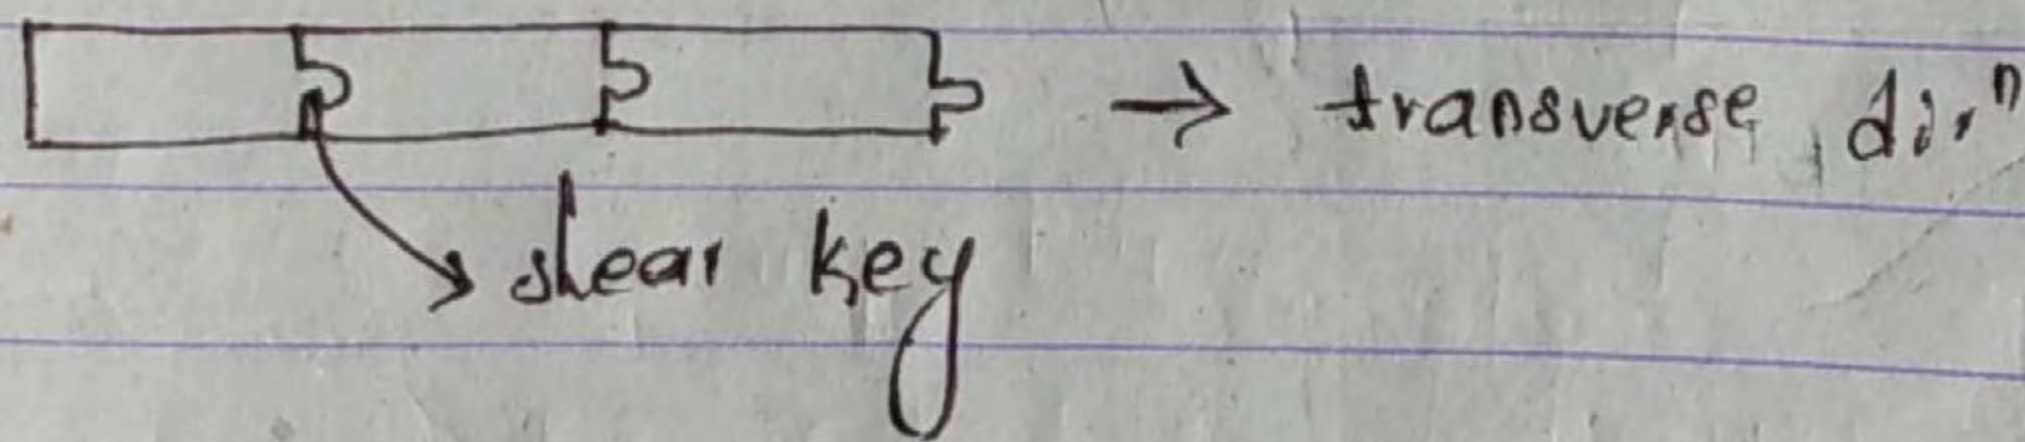 → transverse dirⁿ
shear key